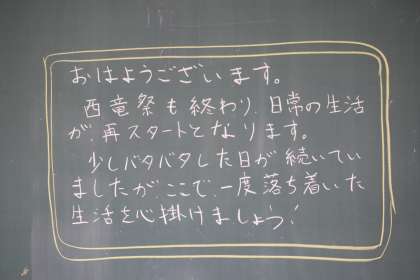 おはようございます。
西竜祭も終わり、日常の生活
が、再スタートとなります。
少しバタバタした日が続いてい
ましたが、ここで、一度落ち着いた
生活を心掛けましょう!